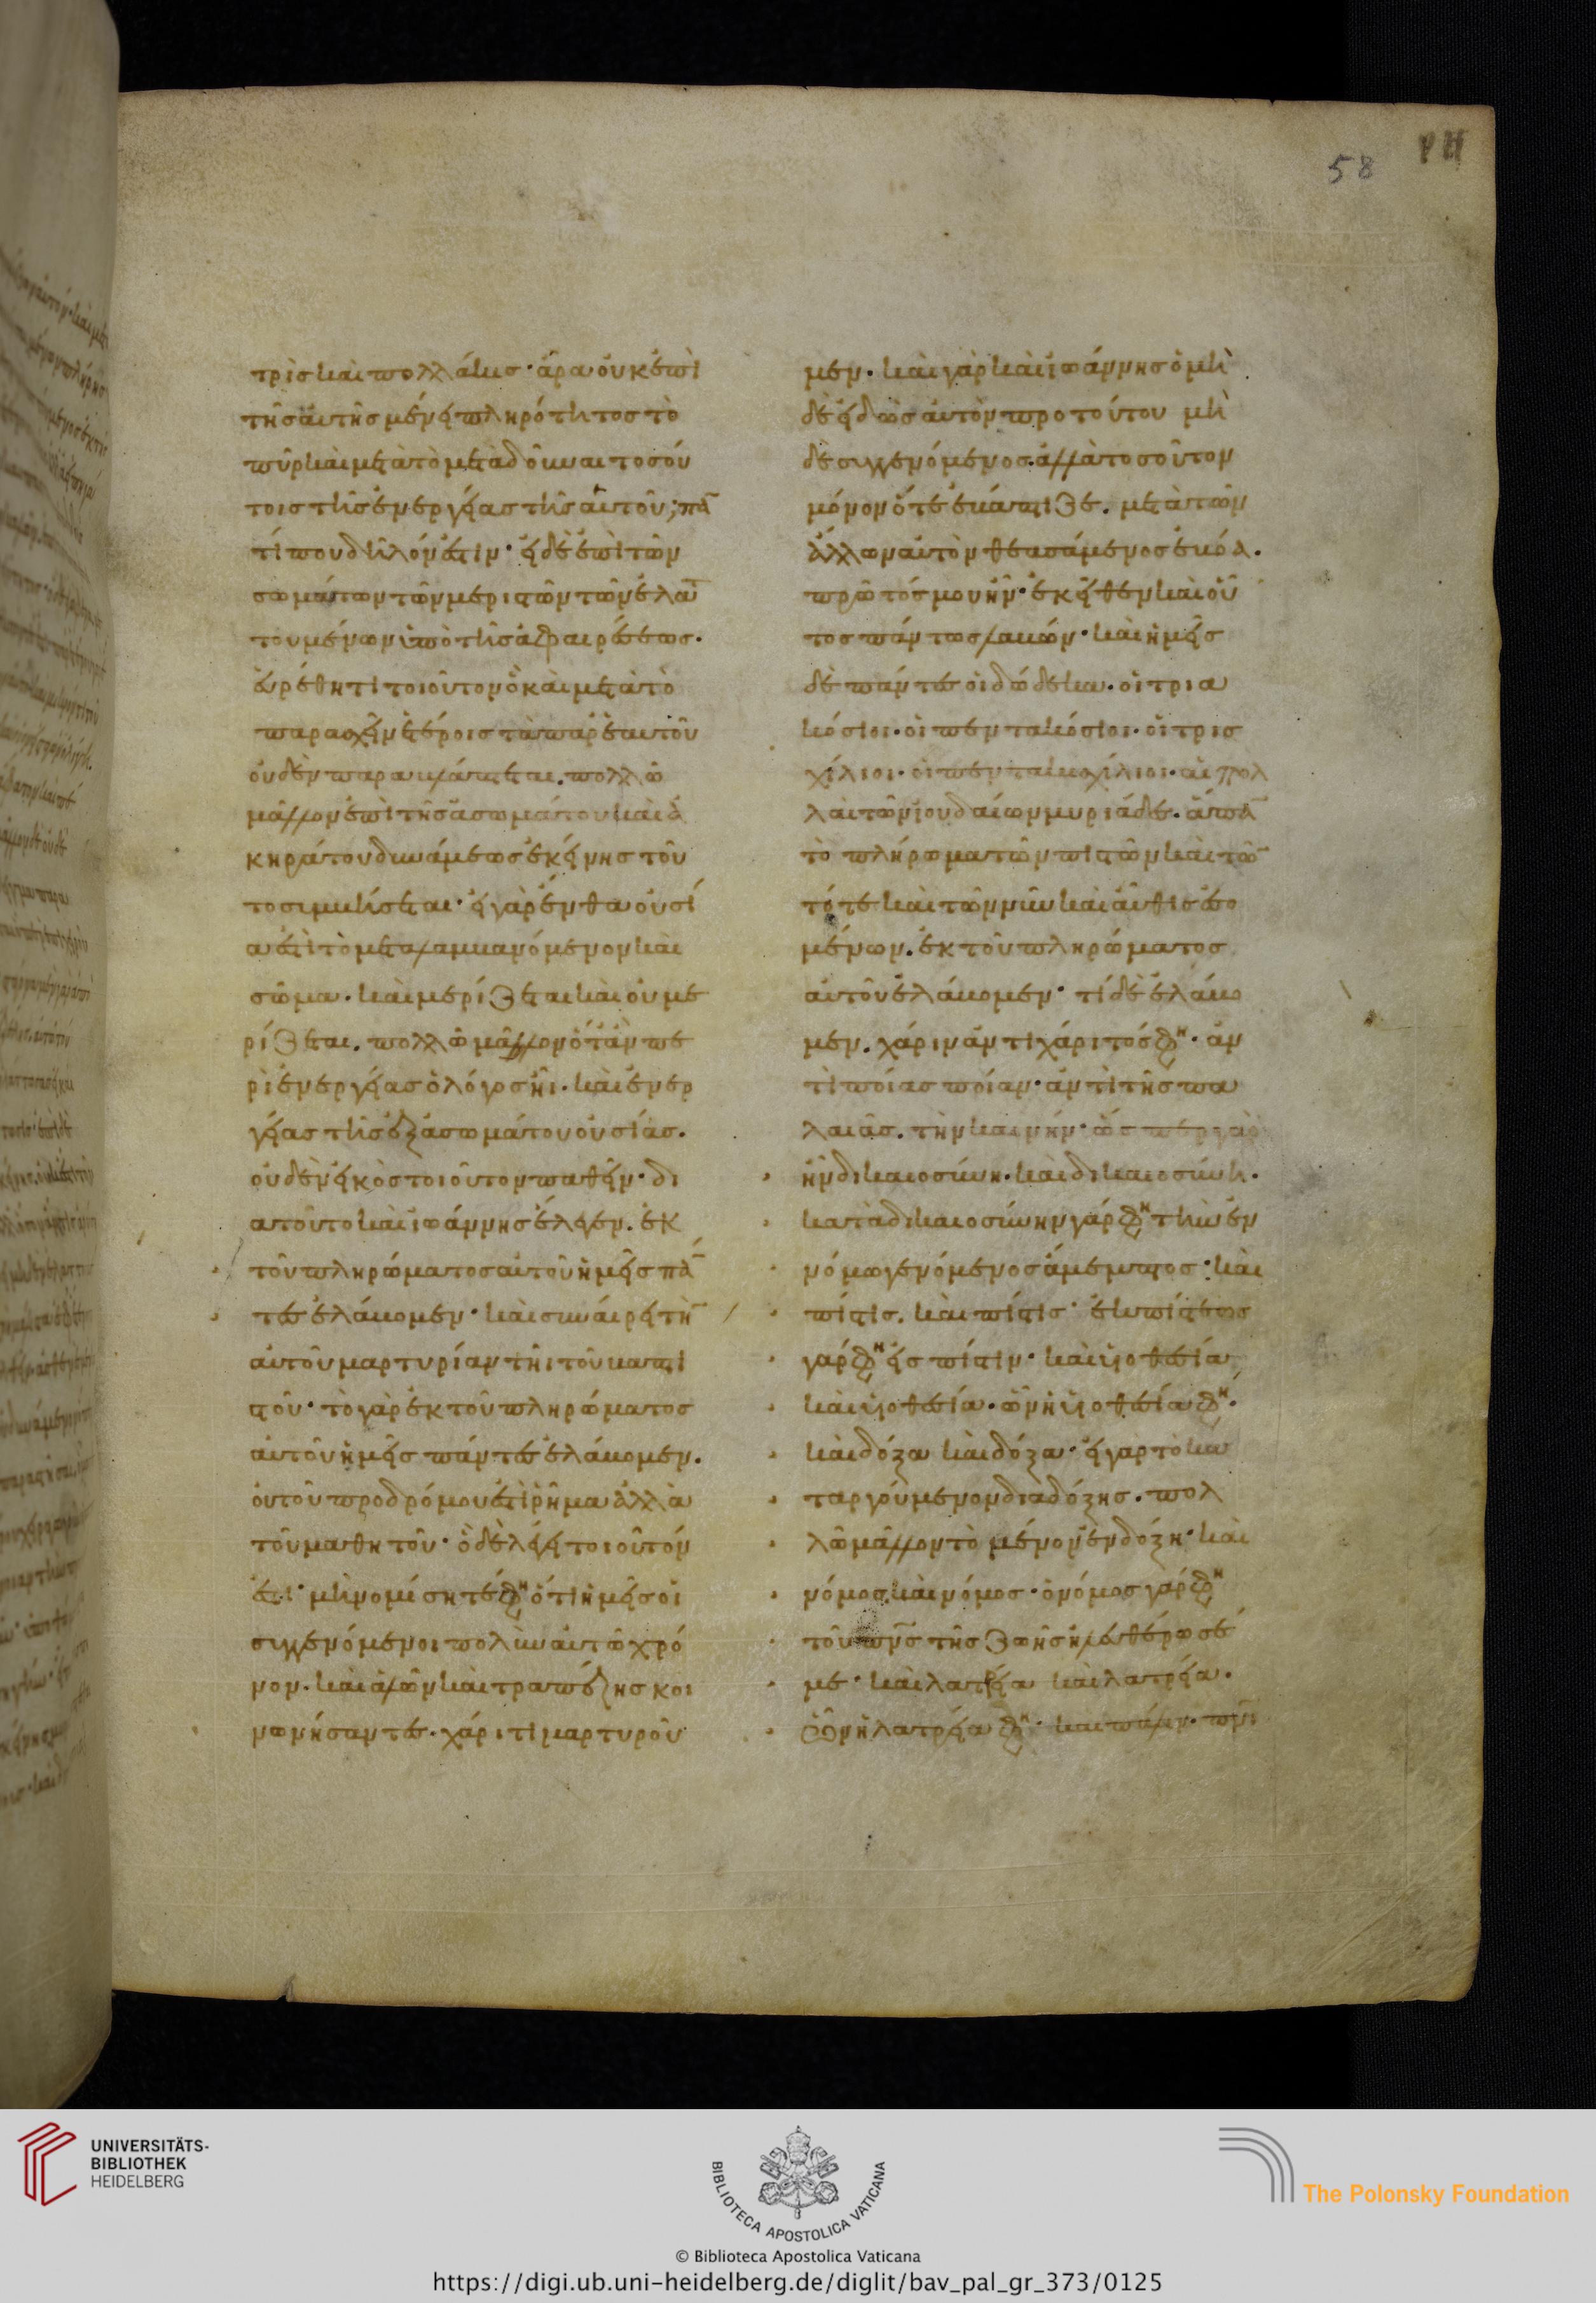 58
ΡΗ
τρὶς καὶ πολλάκις· ἆρα οὐκ ἐπὶ
τῆς αὐτῆς μένει πληρότητος τὸ
πῦρ καὶ μετὰ τὸ μεταδοῦναι τοσού
τοις τῆς ἐνεργείας τῆς αὐτοῦ; πᾶ
τί που δῆλόν ἐστιν· εἰ δὲ ἐπὶ τῶν
σωμάτων τῶν μεριστῶν τῶν ἐλατ
τουμένων ὑπὸ τῆς ἀφαιρέσεως.
εὑρέθη τι τοιοῦτον ὃ καὶ μετὰ τὸ
παρασχεῖν ἑτέροις τὰ παρ' ἑαυτοῦ
οὐδὲν παραβλάπτεται. πολλῷ
μᾶλλον ἐπὶ τῆς ἀσωμάτου καὶ ἀ
κηράτου δυνάμεως ἐκείνης τοῦ
το συμβήσεται· εἰ γὰρ ἔνθα οὐσί
α ἐστὶ τὸ μεταλαμβανόμενον καὶ
σῶμα. καὶ μερίζεται καὶ οὐ με
ρίζεται. πολλῷ μᾶλλον ὅταν πε
ρὶ ἐνεργείας ὁ λόγος ᾖ. καὶ ἐνερ
γείας τῆς ἐξ ἀσωμάτου οὐσίας.
οὐδὲν εἰκὸς τοιοῦτον παθεῖν· δι
α τοῦτο καὶ ἰωάννης ἔλεγεν. ἐκ
τοῦ πληρώματος αὐτοῦ ἡμεῖς πά
τες ἐλάβομεν· καὶ συναιρεῖ τὴ
αὐτοῦ μαρτυρίαν τῆι τοῦ βαπτι
στοῦ· τὸ γὰρ ἐκ τοῦ πληρώματος
αὐτοῦ ἡμεῖς πάντες ἐλάβομεν.
οὐ τοῦ προδρόμου ἐστὶ ῥῆμα ἀλλὰ
τοῦ μαθητοῦ· ὃ δὲ λέγει τοιοῦτόν
ἐστι· μὴ νομίσητέ φη ὅτι ἡμεῖς οἱ
συγγενόμενοι πολὺν αὐτῷ χρό
νον. καὶ ἁλῶν καὶ τραπέζης κοι
νωνήσαντες. χάριτι μαρτυροῦ
μεν. καὶ γὰρ καὶ ἰωάννης ὁ μὴ
δὲ εἰδὼς αὐτὸν πρὸ τούτου μὴ
δὲ συγγενόμενος. ἀλλὰ τοσοῦτον
μόνον ὅτε ἐβάπτιζε. μετὰ τῶν
ἄλλων αὐτὸν θεασάμενος ἐβόα.
πρῶτός μου ἦν· ἐκεῖθεν καὶ οὗ
τος πάντως λαβών· καὶ ἡμεῖς
δὲ πάντες οἱ δώδεκα. οἱ τρια
κόσιοι. οἱ πεντακόσιοι. οἱ τρισ
χίλιοι. οἱ πεντακισχίλιοι. αἱ πολ
λαὶ τῶν ἰουδαίων μυριάδες. ἅπα
τὸ πλήρωμα τῶν πιστῶν καὶ τῶ
τότε καὶ τῶν νῦν καὶ αὖθις ἐσο
μένων. ἐκ τοῦ πληρώματος
αὐτοῦ ἐλάβομεν· τί δὲ ἐλάβο
μεν. χάριν ἀντὶ χάριτός φη· ἀν
τὶ ποίας ποίαν· ἀντὶ τῆς πα
λαιᾶς. τὴν καινήν· ὥσπερ γὰρ
ἦν δικαιοσύνη. καὶ δικαιοσύνη.
κατὰ δικαιοσύνην γάρ φη τὴν ἐν
νόμω γενόμενος ἄμεμπτος· καὶ
πίστις. καὶ πίστις· ἐκ πίστεως
γάρ φη εἰς πίστιν· καὶ υἱοθεσία,
καὶ υἱοθεσία. ὧν ἡ υἱοθεσία φη.
καὶ δόξα καὶ δόξα· εἰ γὰρ τὸ κα
ταργούμενον διὰ δόξης. πολ
λῷ μᾶλλον τὸ μένον ἐν δόξη· καὶ
νόμος καὶ νόμος. ὁ νόμος γάρ φη
τοῦ πνς τῆς ζωῆς ἠλευθέρωσέ
με· καὶ λατρεία καὶ λατρεία.
ὧν ἡ λατρεία φη· καὶ πάλιν. πνι
UNIVERSITÄTS-
BIBLIOTHEK
HEIDELBERG
BIBLIOTECA APOSTOLICA VATICANA
The Polonsky Foundation
© Biblioteca Apostolica Vaticana
https://digi.ub.uni-heidelberg.de/diglit/bav_pal_gr_373/0125